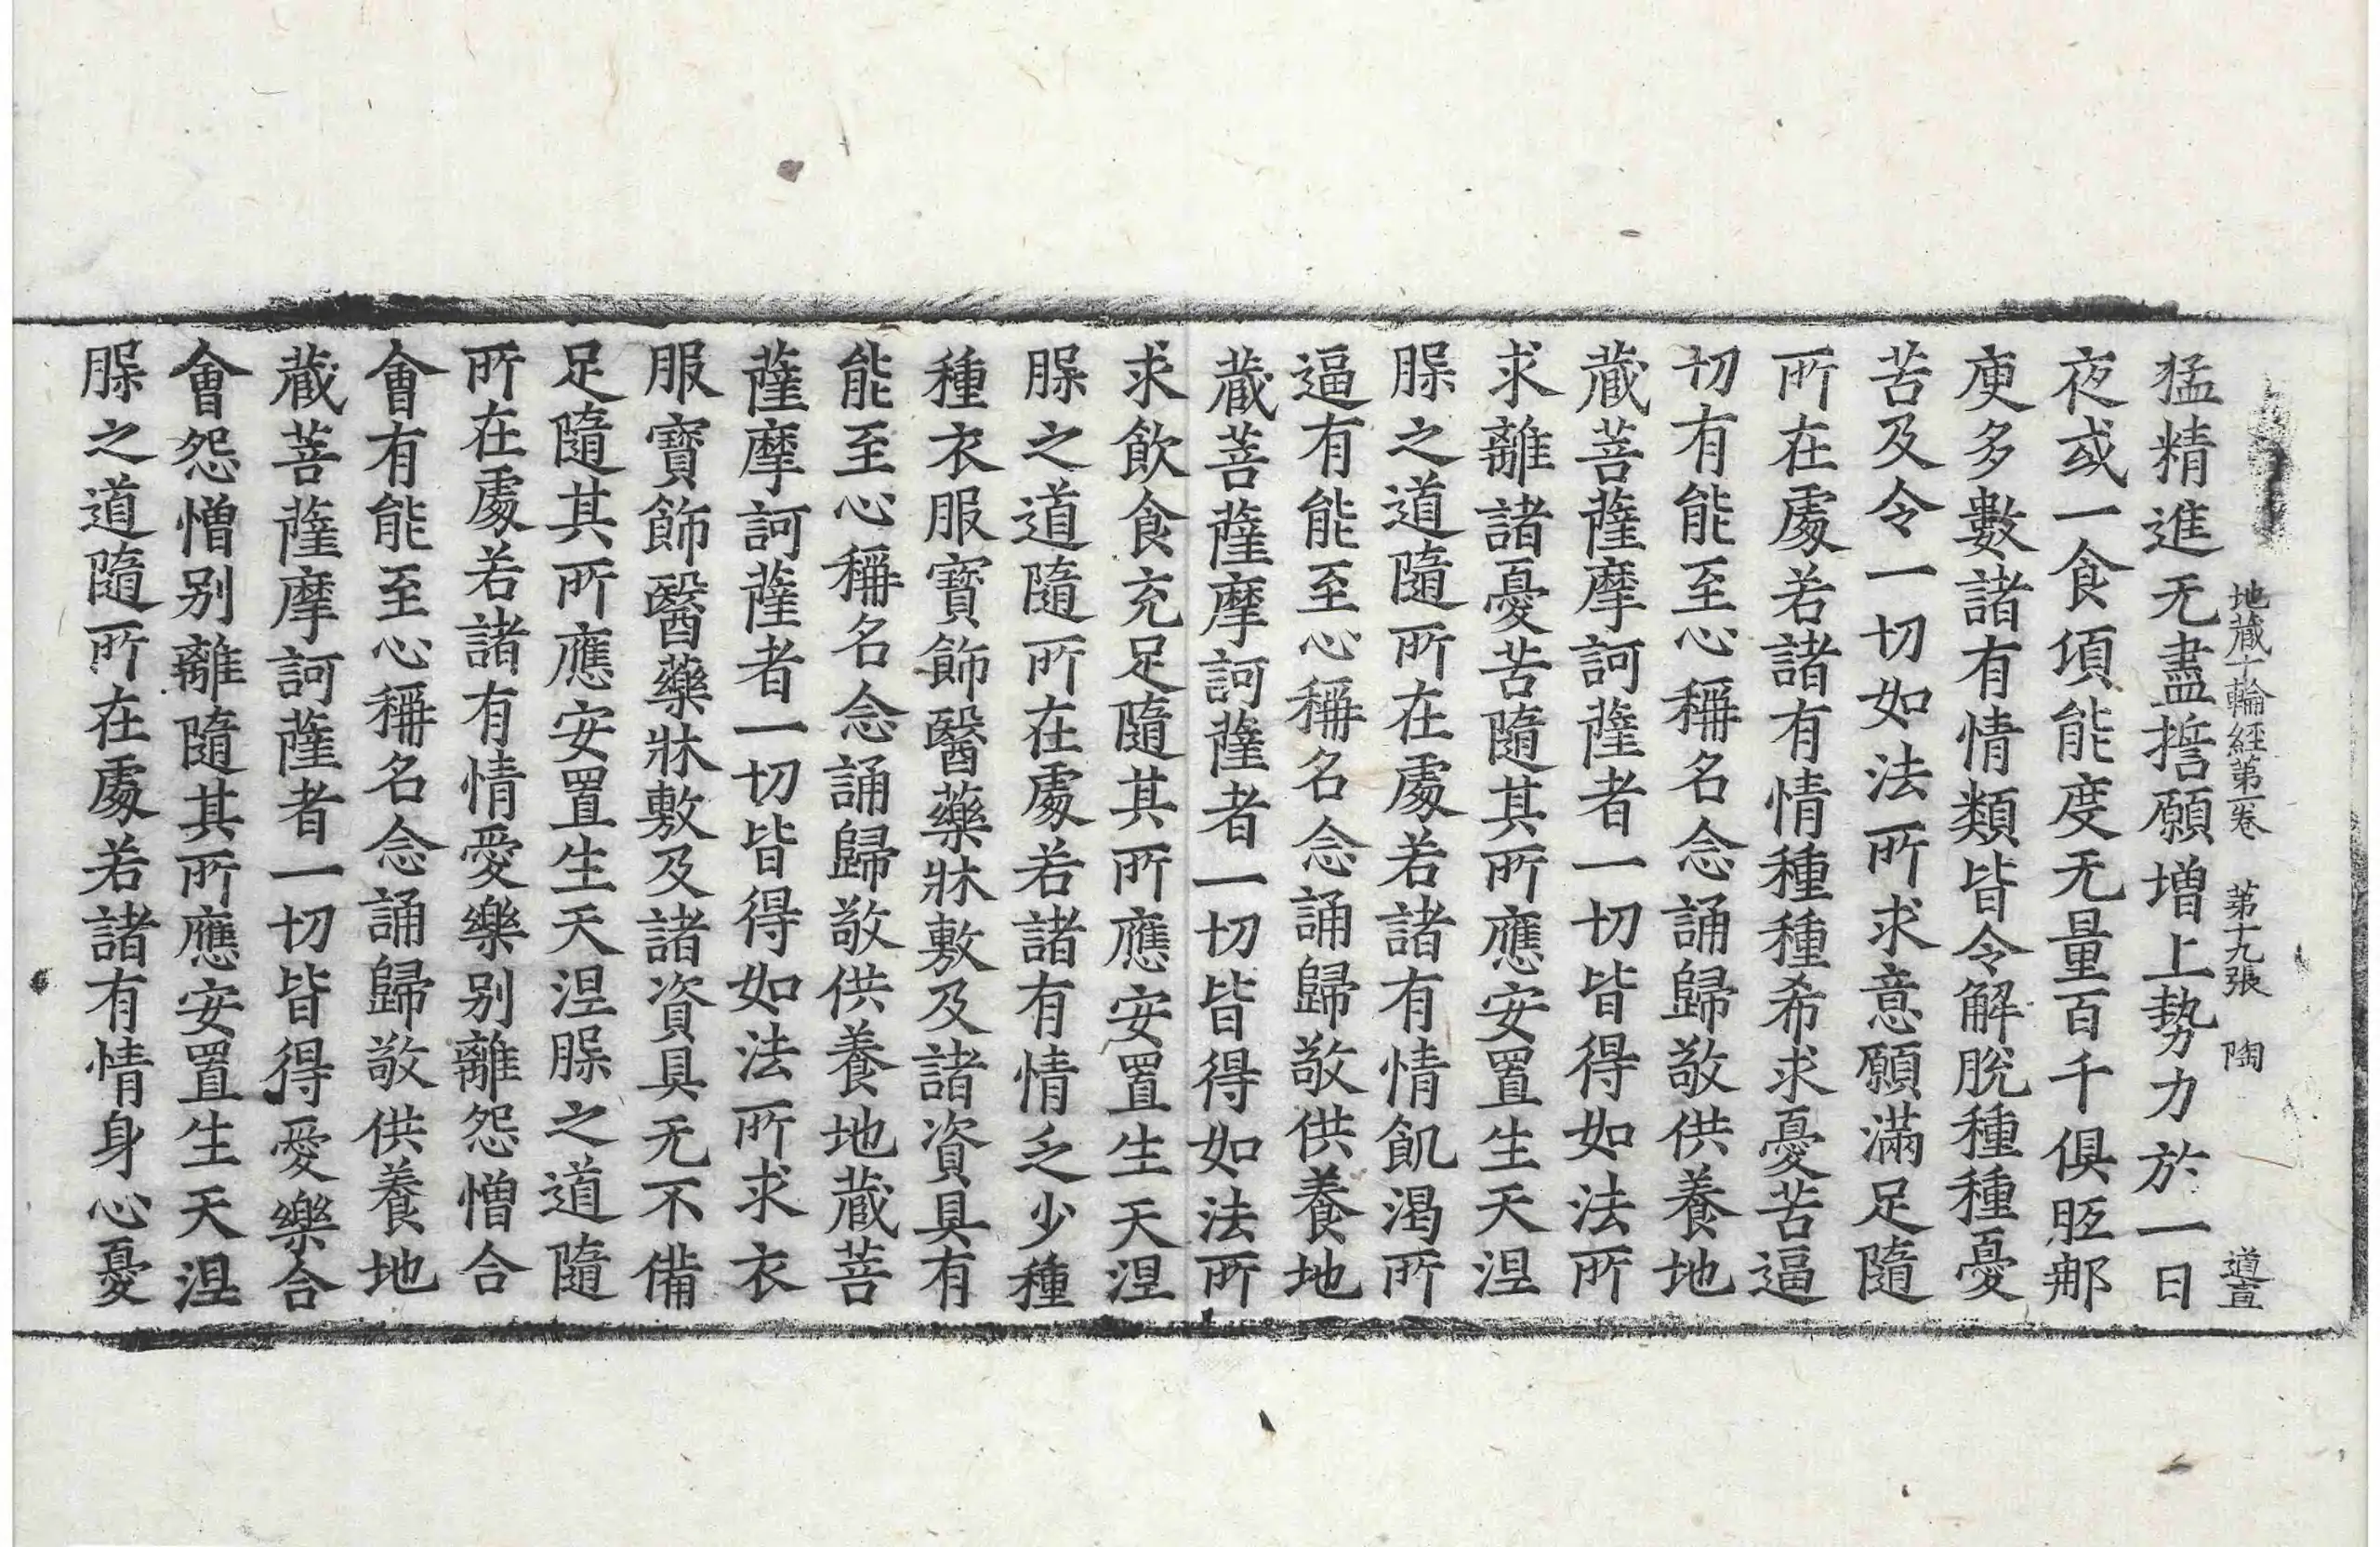 地藏十輪經第一卷　第十九張　陶　道直
猛精進无盡誓願增上勢力於一日
夜或一食頃能度无量百千俱胝那
庾多數諸有情類皆令解脫種種憂
苦及令一切如法所求意願滿足隨
所在處若諸有情種種希求憂苦逼
切有能至心稱名念誦歸敬供養地
藏菩薩摩訶薩者一切皆得如法所
求離諸憂苦隨其所應安置生天涅
腜之道隨所在處若諸有情飢渴所
逼有能至心稱名念誦歸敬供養地
藏菩薩摩訶薩者一切皆得如法所
求飲食充足隨其所應安置生天涅
腜之道隨所在處若諸有情乏少種
種衣服寶飾醫藥牀敷及諸資具有
能至心稱名念誦歸敬供養地藏菩
薩摩訶薩者一切皆得如法所求衣
服寶飾醫藥牀敷及諸資具无不備
足隨其所應安置生天涅腜之道隨
所在處若諸有情愛樂別離怨憎合
會有能至心稱名念誦歸敬供養地
藏菩薩摩訶薩者一切皆得愛樂合
會怨憎別離隨其所應安置生天涅
腜之道隨所在處若諸有情身心憂